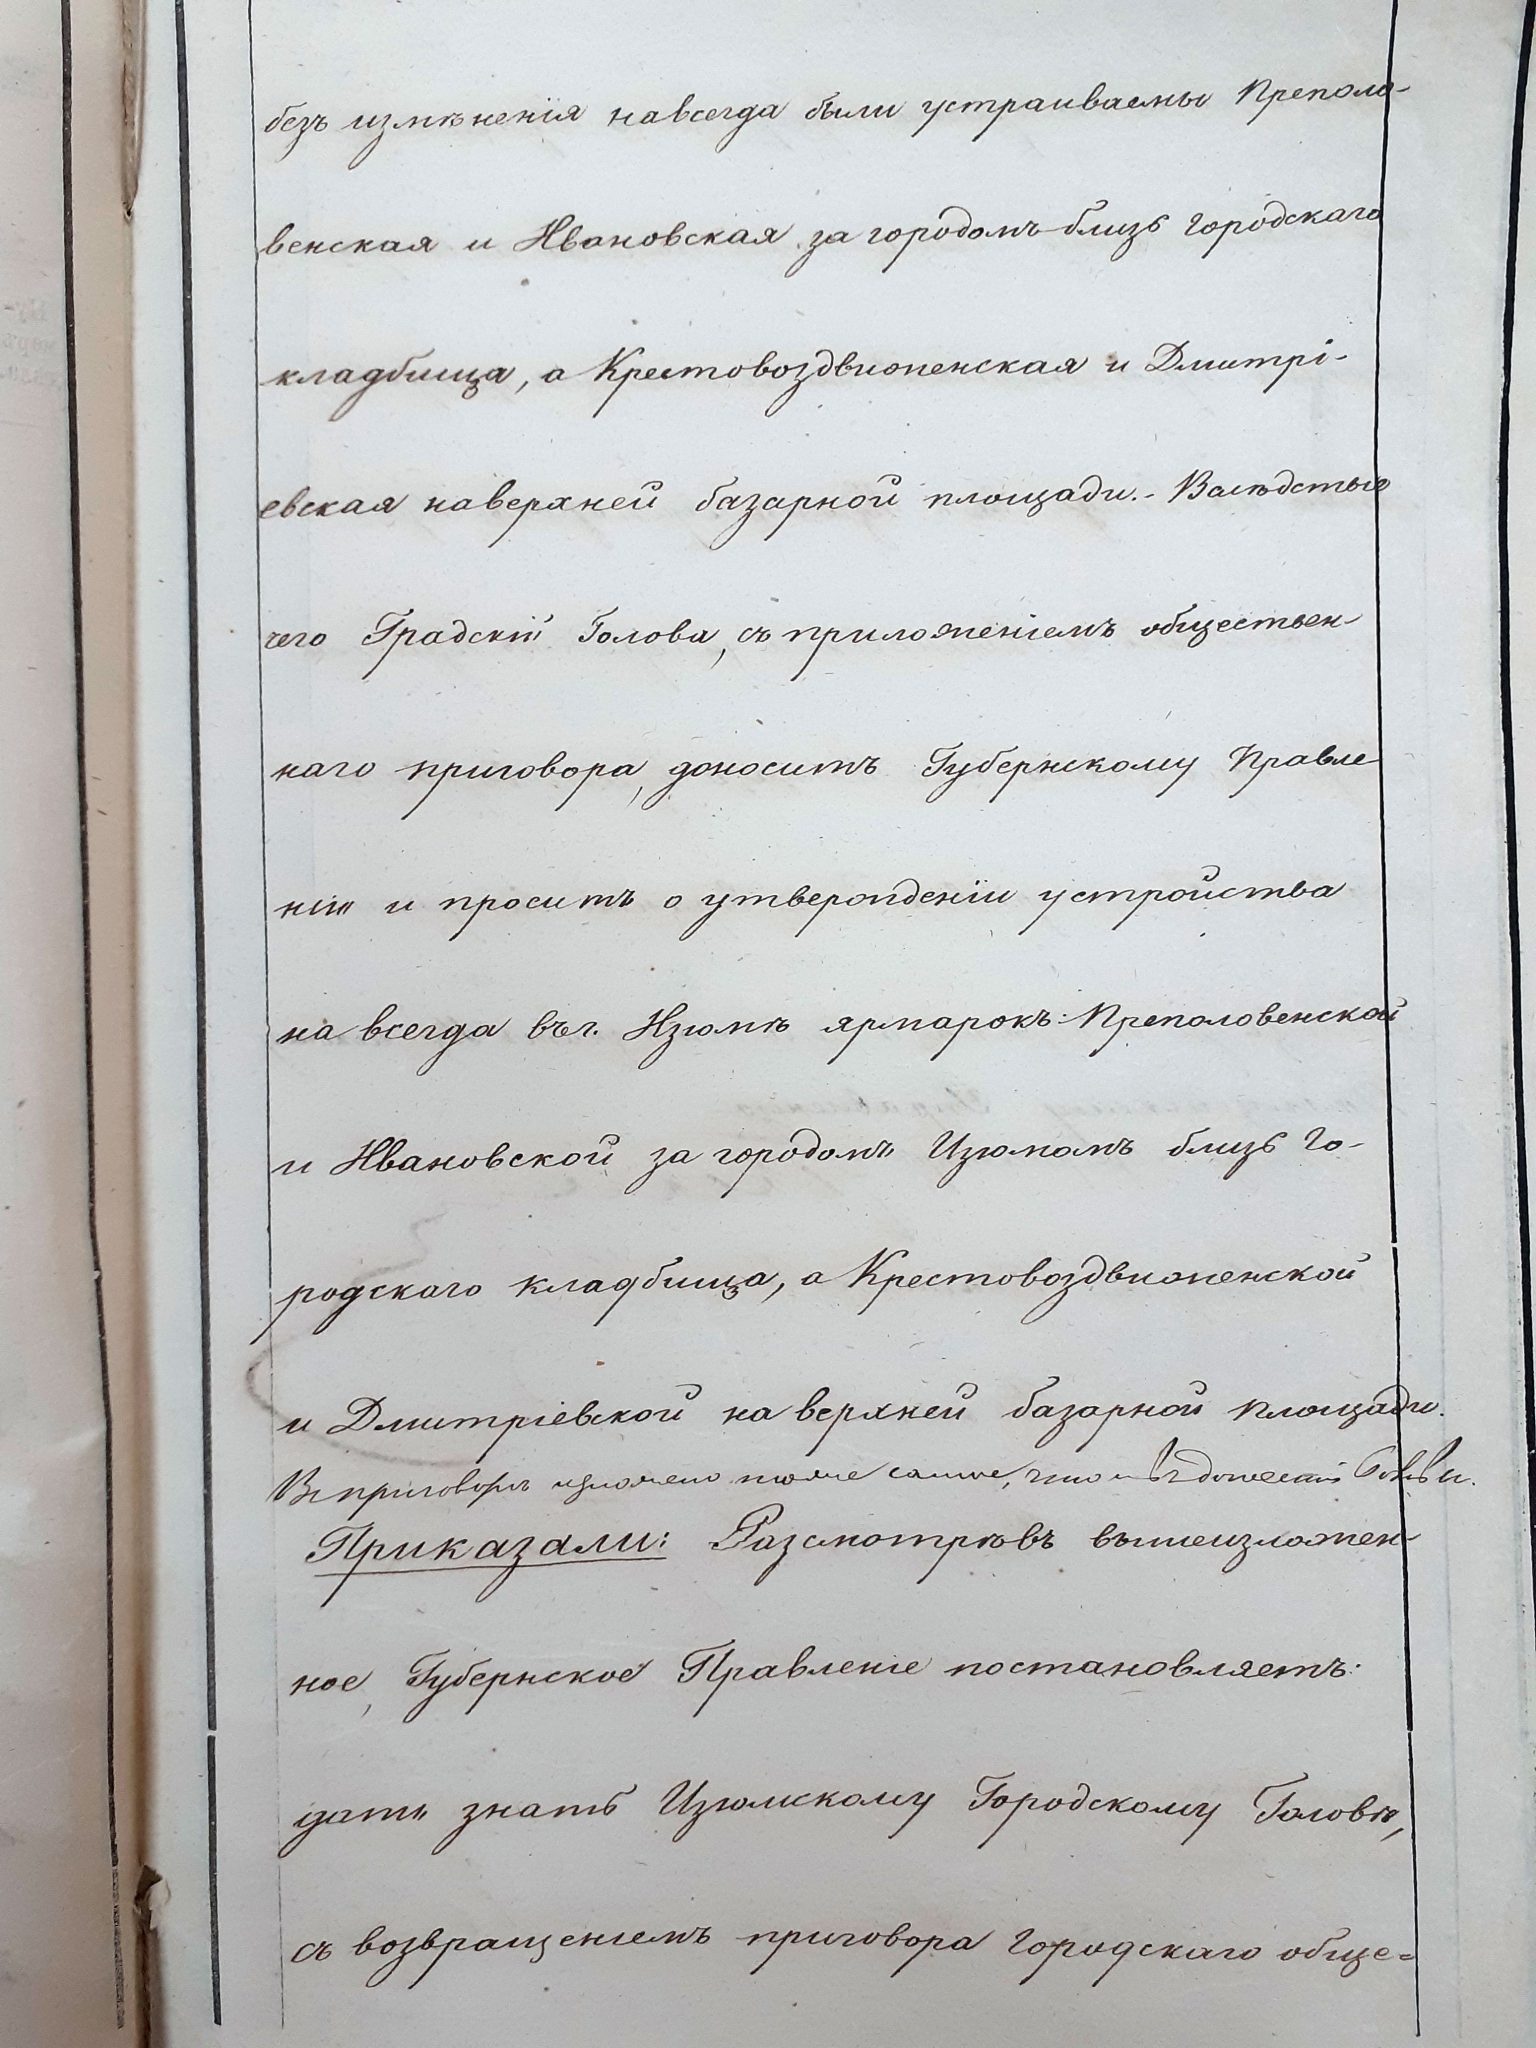 безъ измѣненія навсегда были устраиваемы Преполо-
венская и Ивановская за городомъ близъ городскаго
кладбища, а Крестовоздвиженская и Дмитрі-
евская на верхней базарной площади. - Вслѣдствіе
чего Градскій Голова, съ приложеніемъ обществен-
наго приговора, доноситъ Губернскому Правле-
нію и проситъ о утвержденіи устройства
на всегда въ г. Изюмѣ ярмарокъ: Преполовенской
и Ивановской за городомъ Изюмомъ близъ го-
родскаго кладбища, а Крестовоздвиженской
и Дмитріевской на верхней базарной площади.
Въ приговорѣ изложено тоже самое, что и въ донесеніи Головы.
Приказали: Разсмотрѣвъ вышеизложен-
ное, Губернское Правленіе постановляетъ:
дать знать Изюмскому Городскому Головѣ,
съ возвращеніемъ приговора городскаго обще-